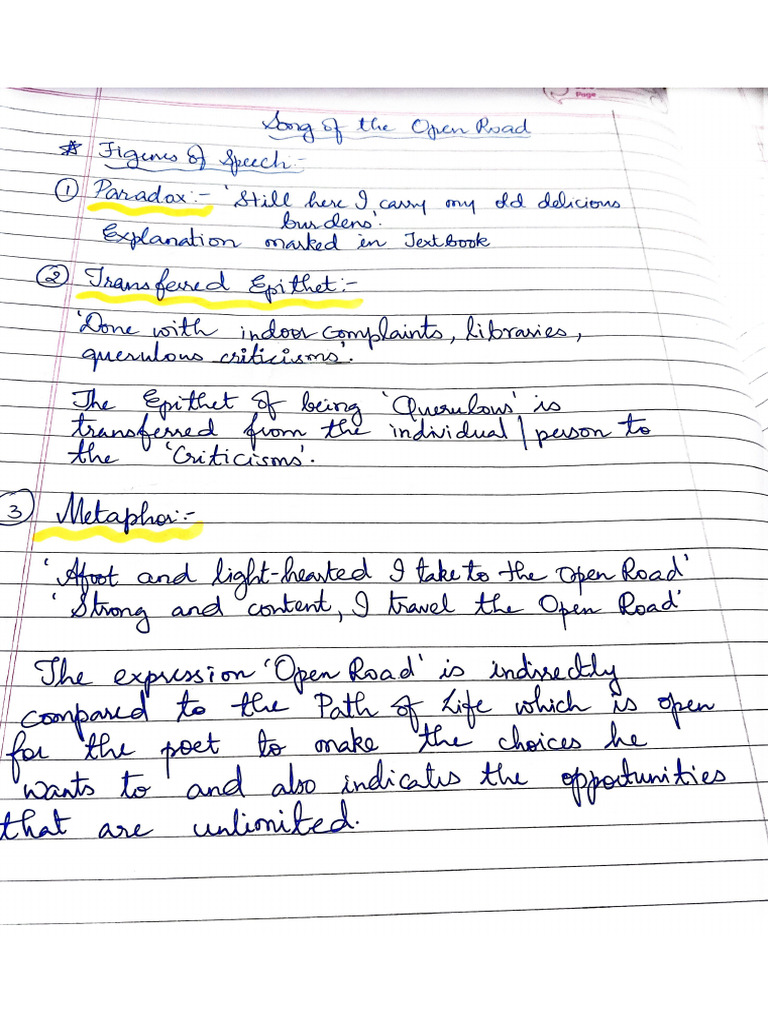 Page
Song of the Open Road
* Figures of Speech:-
① Paradox:- 'Still here I carry my old delicious
burdens'.
Explanation marked in Textbook
② Transferred Epithet:-
'Done with indoor complaints, libraries,
querulous criticisms'.
The Epithet of being 'Querulous' is
transferred from the individual / person to
the 'Criticisms'.
③ Metaphor:-
'Afoot and light-hearted I take to the Open Road'
'Strong and content, I travel the Open Road'
The expression 'Open Road' is indirectly
compared to the Path of Life which is open
for the poet to make the choices he
wants to and also indicates the opportunities
that are unlimited.